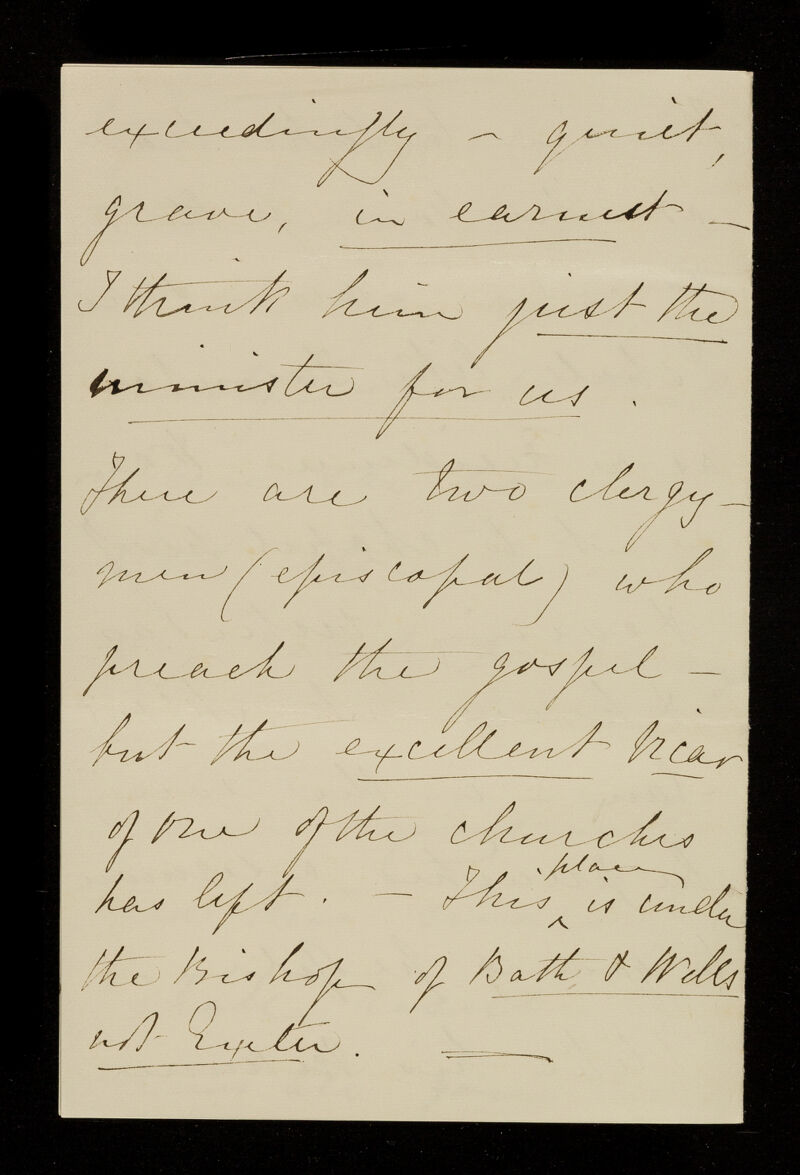 exceedingly – quiet,
grave, in earnest –
I think him just the
minister for us.
There are two clergy-
men (episcopal) who
preach the gospel –
but the excellent Vicar
of one of the churches
has left. – This place is under
the Bishop of Bath & Wells
not Exeter. —